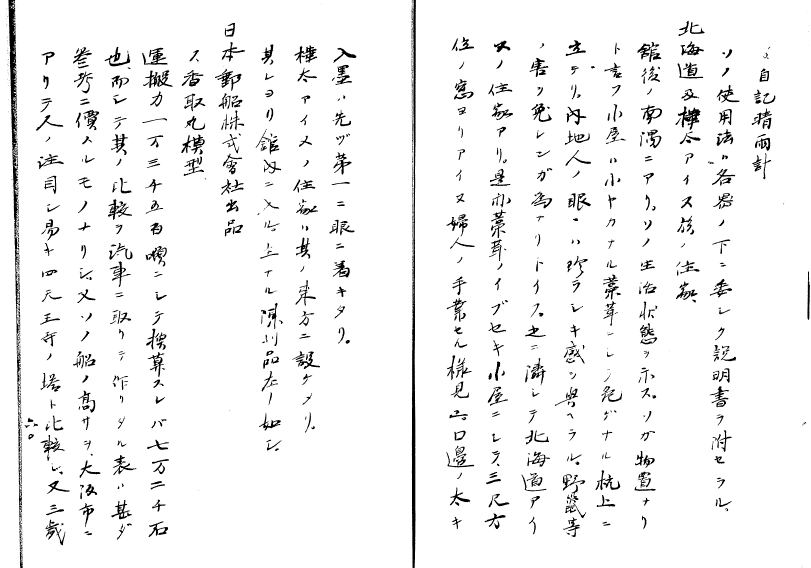 自記晴雨計
ソノ使用法ハ各器ノ下ニ委シク説明書ヲ附セラル。
北海道及樺太アイヌ族ノ住家、
館後ノ南隅ニアリ。ソノ生活状態ヲ示ス。ソガ物置ナリ
ト言フ小屋ハ小ヤカナル藁葺ニシテ危ゲナル杭上ニ
立テリ。内地人ノ眼ニハ珍ラシキ感ヲ與ヘラル。野鼠等
ノ害ヲ免レンガ為ナリトイス。之ニ隣シテ北海道アイ
ヌノ住家アリ。是亦藁葺ノイブセキ小屋ニシテ、三尺方
位ノ窓ヨリアイヌ婦人ノ手業セル様見ユ。口邊ノ太キ
入墨ハ先ヅ第一ニ眼ニ着キタリ。
樺太アイヌノ住家ハ其ノ東方ニ設ケアリ。
其レヨリ館内ニ入ル、上ナル陳列品左ノ如シ、
日本郵船株式會社出品
香取丸模型
運搬力一万三千五百噸ニシテ換算スレバ七万二千石
也、而シテ其ノ比較ヲ汽車ニ取リテ作リタル表ハ甚ダ
参考ニ價スルモノナリシ、又ソノ船ノ高サヲ、大阪市ニ
アリテ人ノ注目シ易キ四天王寺ノ塔ト比較シ、又三歳
六〇